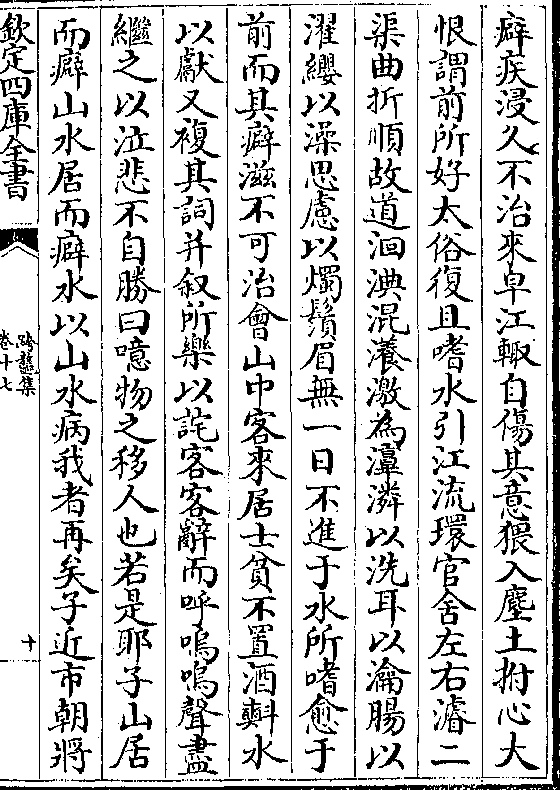 癖疾浸久不治來阜江輙自傷其意猥入塵土拊心大
恨謂前所好太俗復且嗜水引江流環官舍左右濬二
渠曲折順故道洄淟混瀁激為潭潾以洗耳以瀹腸以
濯纓以澡思慮以燭鬚眉無一日不進于水所嗜愈于
前而其癖滋不可治會山中客來居士貧不置酒㪺水
以獻又複其詞并叙所樂以詫客客辭而呼嗚嗚聲盡
繼之以泣悲不自勝曰噫物之移人也若是耶子山居
而癖山水居而癖水以山水病我者再矣子近市朝將
欽定四庫全書
跨鼇集
卷十七
十